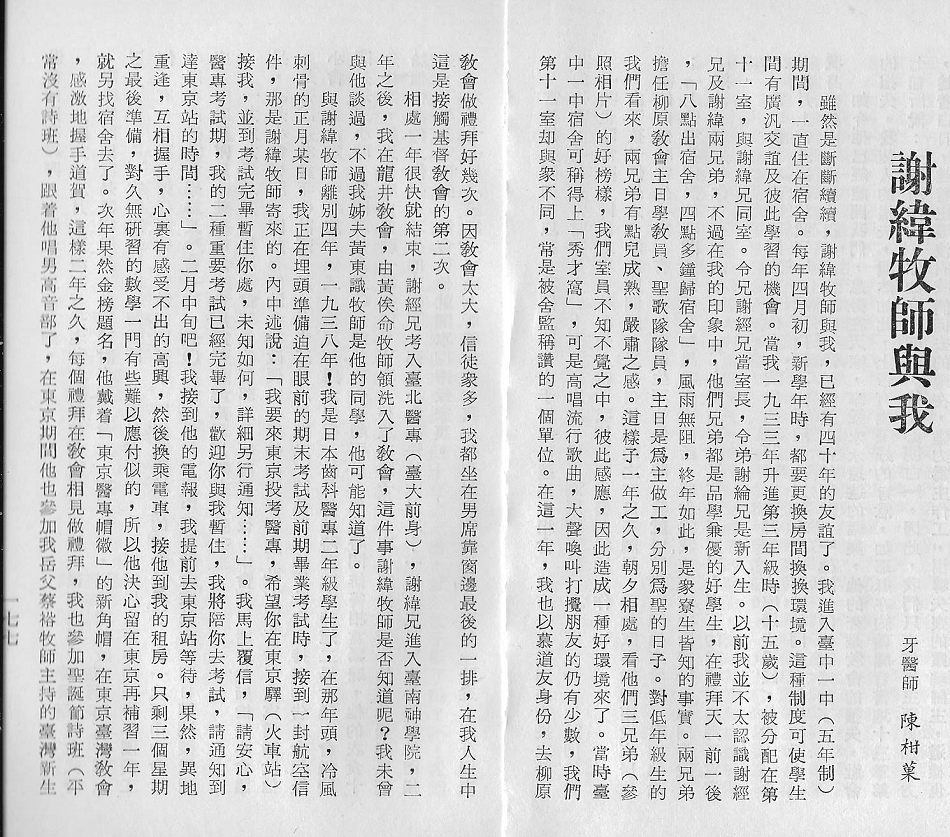 謝緯牧師與我
牙醫師　陳柑菓
雖然是斷斷續續，謝緯牧師與我，已經有四十年的友誼了。我進入臺中一中（五年制）
期間，一直住在宿舍。每年四月初，新學年時，都要更換房間換換環境。這種制度可使學生
間有廣汎交誼及彼此學習的機會。當我一九三三年升進第三年級時（十五歲），被分配在第
十一室，與謝緯兄同室。令兄謝經兄當室長，令弟謝綸兄是新入生。以前我並不太認識謝經
兄及謝緯兩兄弟，不過在我的印象中，他們兄弟都是品學兼優的好學生，在禮拜天一前一後
，「八點出宿舍，四點多鐘歸宿舍」，風雨無阻，終年如此，是衆寮生皆知的事實。兩兄弟
擔任柳原敎會主日學敎員、聖歌隊隊員，主日是爲主做工，分別爲聖的日子。對低年級生的
我們看來，兩兄弟有點兒成熟，嚴肅之感。這樣子一年之久，朝夕相處，看他們三兄弟（參
照相片）的好榜樣，我們室員不知不覺之中，彼此感應，因此造成一種好環境來了。當時臺
中一中宿舍可稱得上「秀才窩」，可是高唱流行歌曲，大聲喚叫打擾朋友的仍有少數，我們
第十一室却與衆不同，常是被舍監稱讚的一個單位。在這一年，我也以慕道友身份，去柳原
敎會做禮拜好幾次。因敎會太大，信徒衆多，我都坐在男席靠窗邊最後的一排，在我人生中
這是接觸基督敎會的第二次。
相處一年很快就結束，謝經兄考入臺北醫專（臺大前身），謝緯兄進入臺南神學院，二
年之後，我在龍井敎會，由黃俟命牧師領洗入了敎會，這件事謝緯牧師是否知道呢？我未曾
與他談過，不過我姊夫黃東識牧師是他的同學，他可能知道了。
與謝緯牧師離別四年，一九三八年！我是日本齒科醫專二年級學生了，在那年頭，冷風
刺骨的正月某日，我正在埋頭準備迫在眼前的期末考試及前期畢業考試時，接到一封航空信
件，那是謝緯牧師寄來的。內中述說：「我要來東京投考醫專，希望你在東京驛（火車站）
接我，並到考試完畢暫住你處，未知如何，詳細另行通知……」。我馬上覆信，「請安心，
醫專考試期，我的二種重要考試已經完畢了，歡迎你與我暫住，我將陪你去考試，請通知到
達東京站的時間……」。二月中旬吧！我接到他的電報，我提前去東京站等待，果然，異地
重逢，互相握手，心裏有感受不出的高興，然後換乘電車，接他到我的租房。只剩三個星期
之最後準備，對久無硏習的數學一門有些難以應付似的，所以他決心留在東京再補習一年，
就另找宿舍去了。次年果然金榜題名，他戴着「東京醫專帽徽」的新角帽，在東京臺灣敎會
，感激地握手道賀，這樣二年之久，每個禮拜在敎會相見做禮拜，我也參加聖誕節詩班（平
常沒有詩班），跟着他唱男高音部了，在東京期間他也參加我岳父蔡裕牧師主持的臺灣新生
一七七